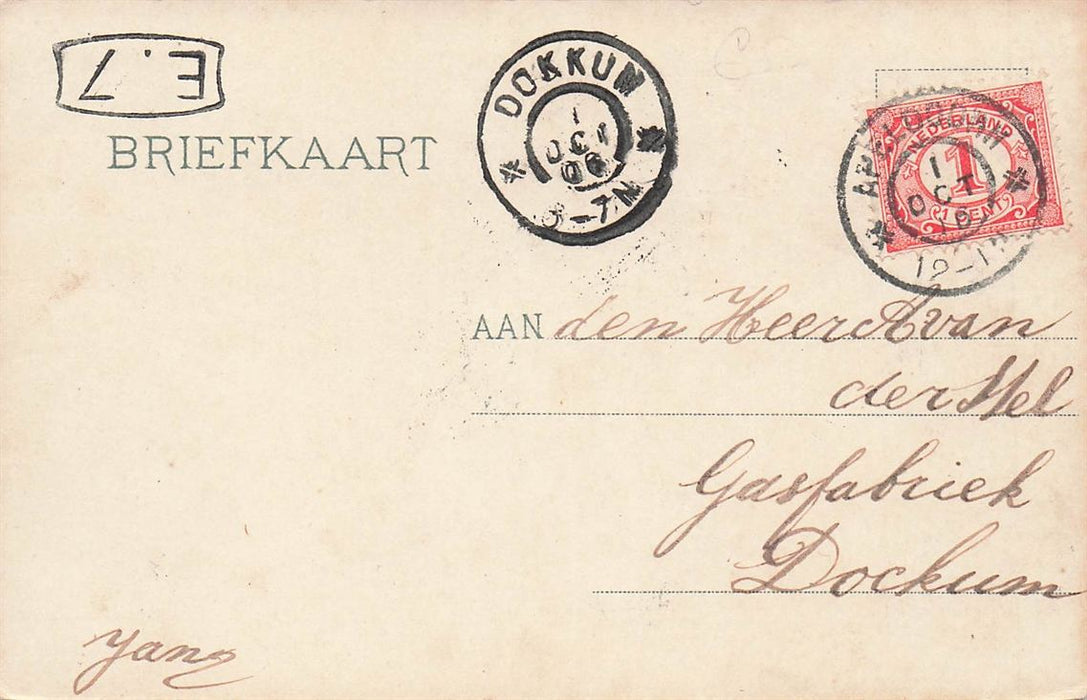 E.7
BRIEFKAART
DOKKUM
1
OCT
06
5-7N
APELDOORN
1
OCT
12-1N
NEDERLAND
1
1 CENT
AAN den Heer A van
der Mel
Gasfabriek
Dockum
Jang